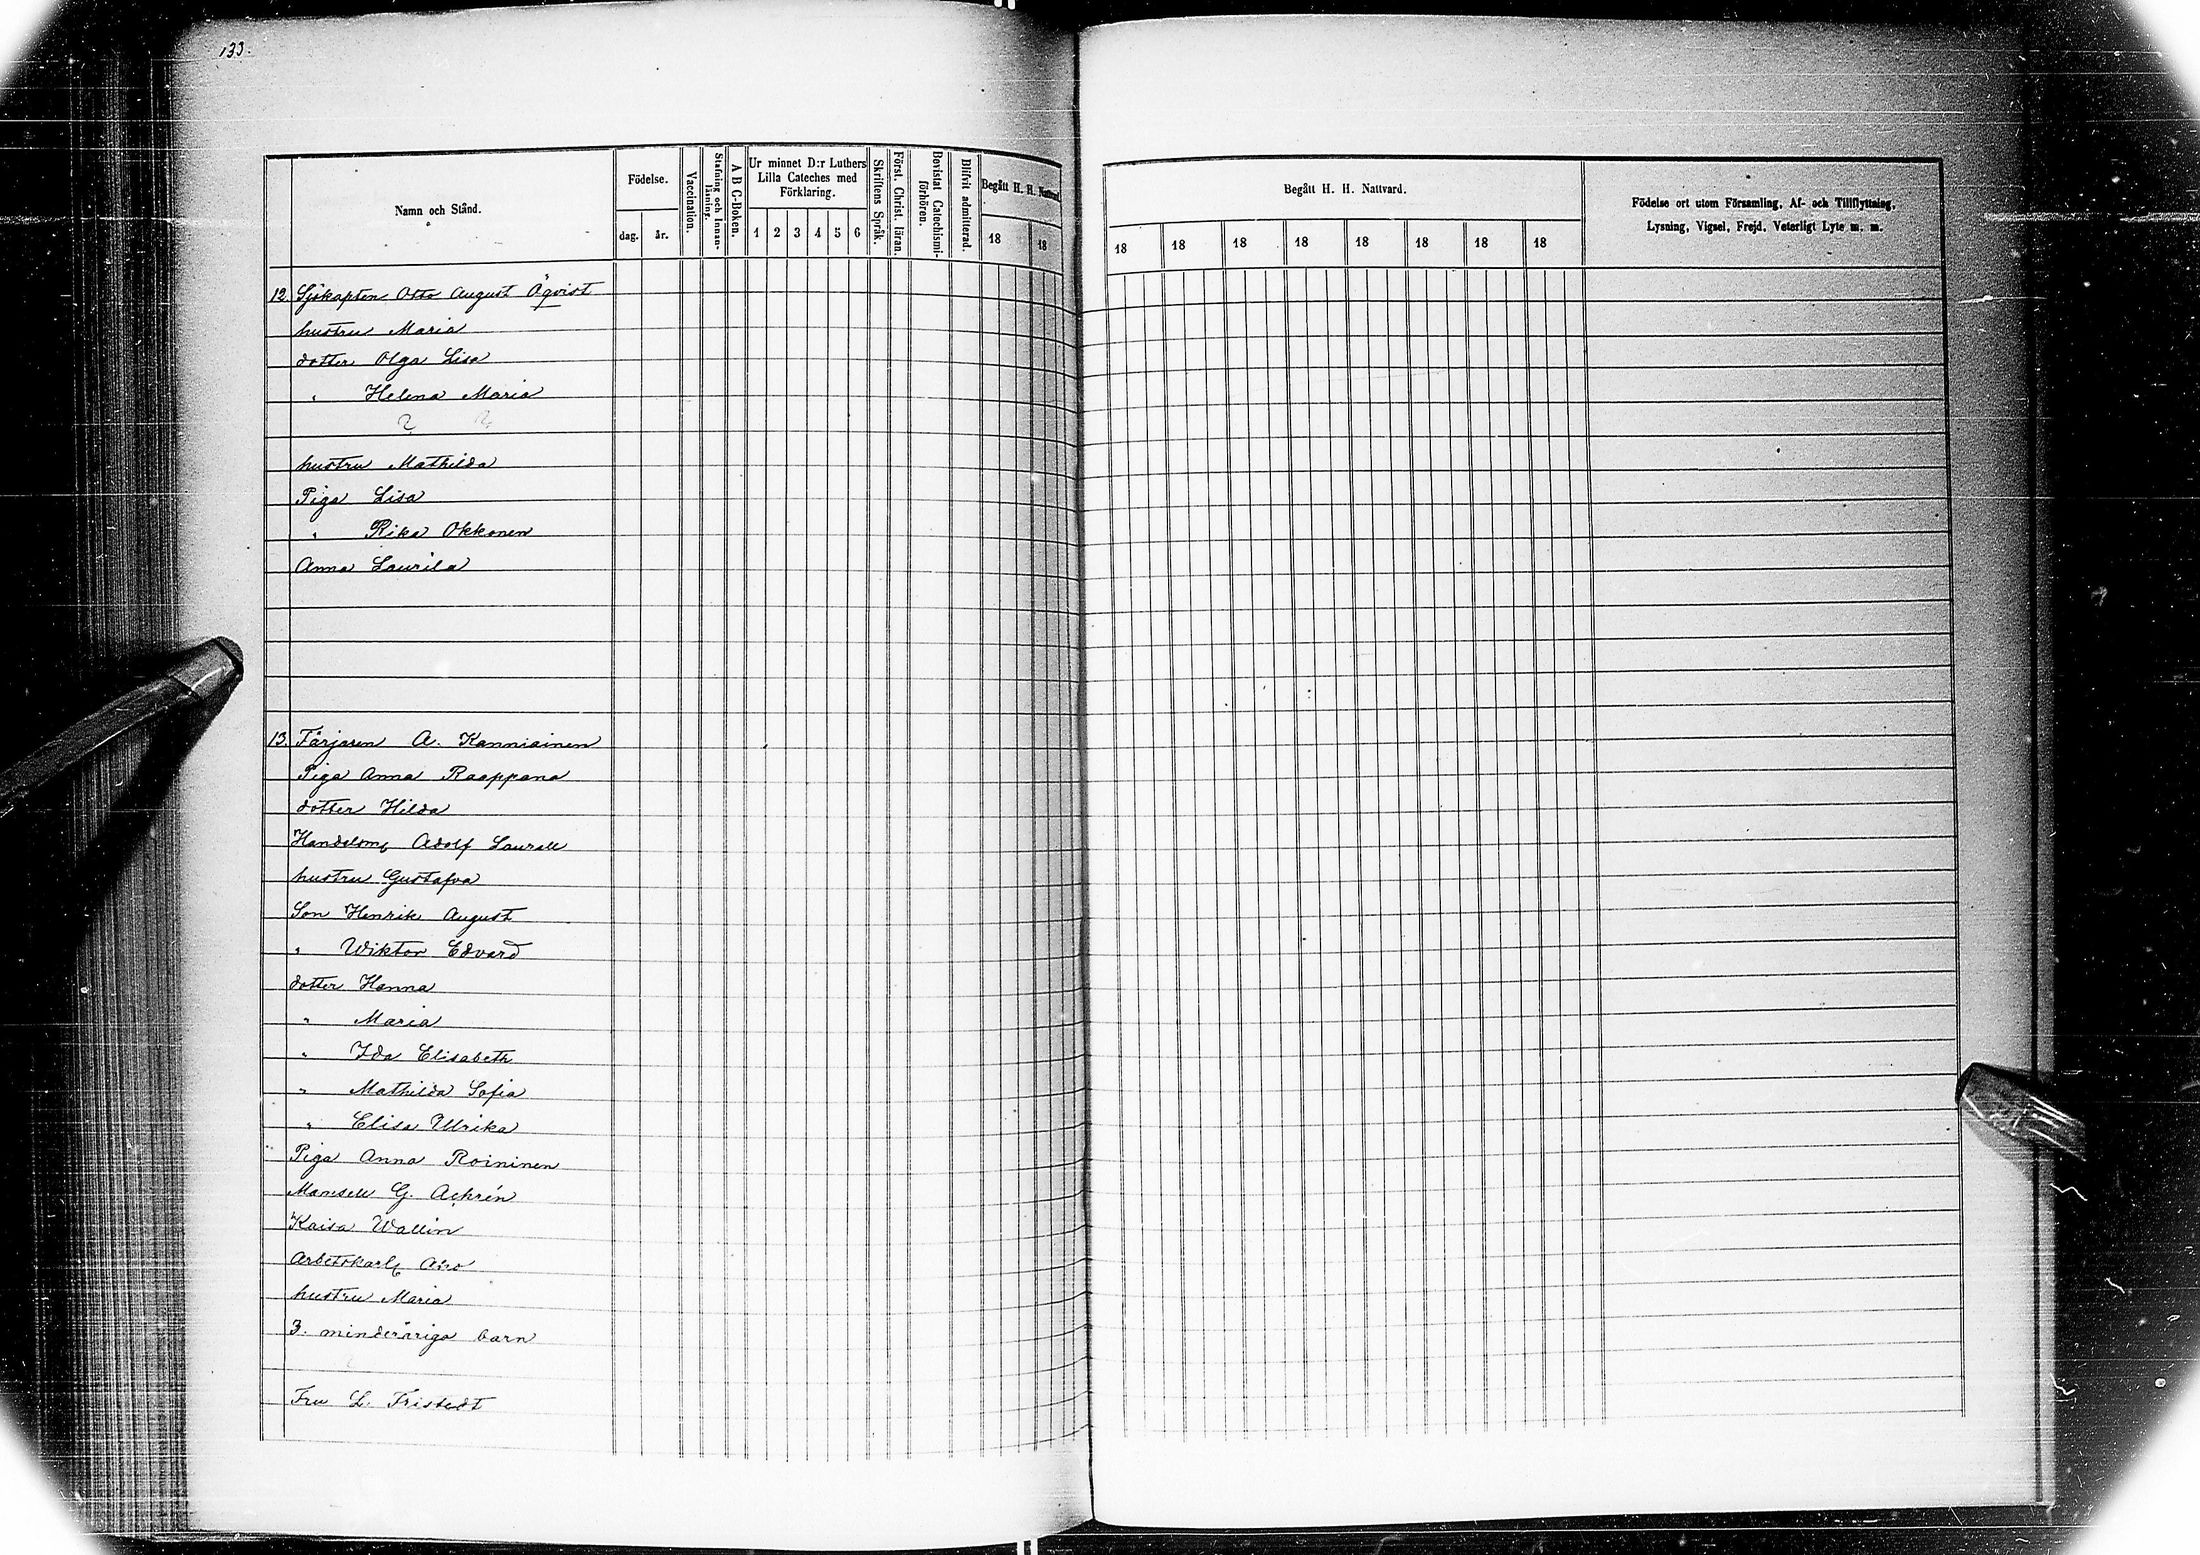 133.
Namn och Stånd.
Födelse.
dag.
år.
Vaccination.
Stafning och Innan-
läsning.
A B C-Boken.
Ur minnet D:r Luthers
Lilla Cateches med
Förklaring.
1 2 3 4 5 6
Skriftens Språk.
Först. Christ. läran.
Bevistat Catechismi-
förhören.
Blifvit admitterad.
Begått H. H. Nattvard.
18 18
Begått H. H. Nattvard.
18 18 18 18 18 18 18 18
Födelse ort utom Församling, Af- och Tillflyttning,
Lysning, Vigsel, Frejd, Veterligt Lyte m. m.
12. Sjökapten Otto August Öqvist
hustru Maria
dotter Olga Lisa
" Helena Maria
? ?
hustru Mathilda
Piga Lisa
" Rika Okkonen
Anna Laurila
13. Färjaren A. Kanniainen
Piga Anna Raappana
dotter Hilda
Handelsm Adolf Laurell
hustru Gustafva
Son Henrik August
" Wiktor Edvard
dotter Hanna
" Maria
" Ida Elisabeth
" Mathilda Sofia
" Elisa Ulrika
Piga Anna Roininen
Mamsell G. Achrén
Kaisa Wallin
Arbetskarl
hustru Maria
3. minderåriga barn
Fru L. Fristedt